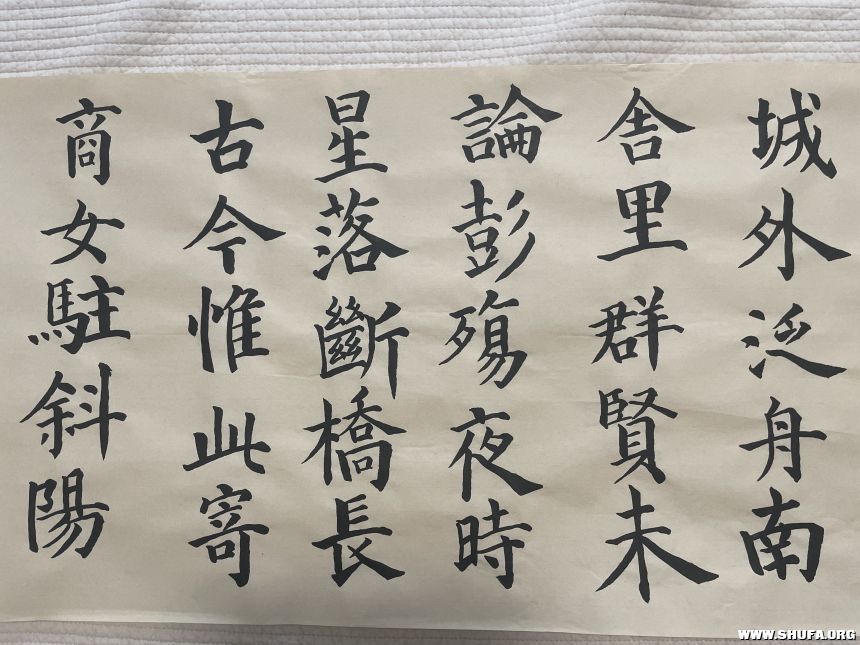 城外泛舟南
舍里群賢未
論彭殤夜時
星落斷橋長
古今惟此寄
商女駐斜陽
WWW.SHUFA.ORG